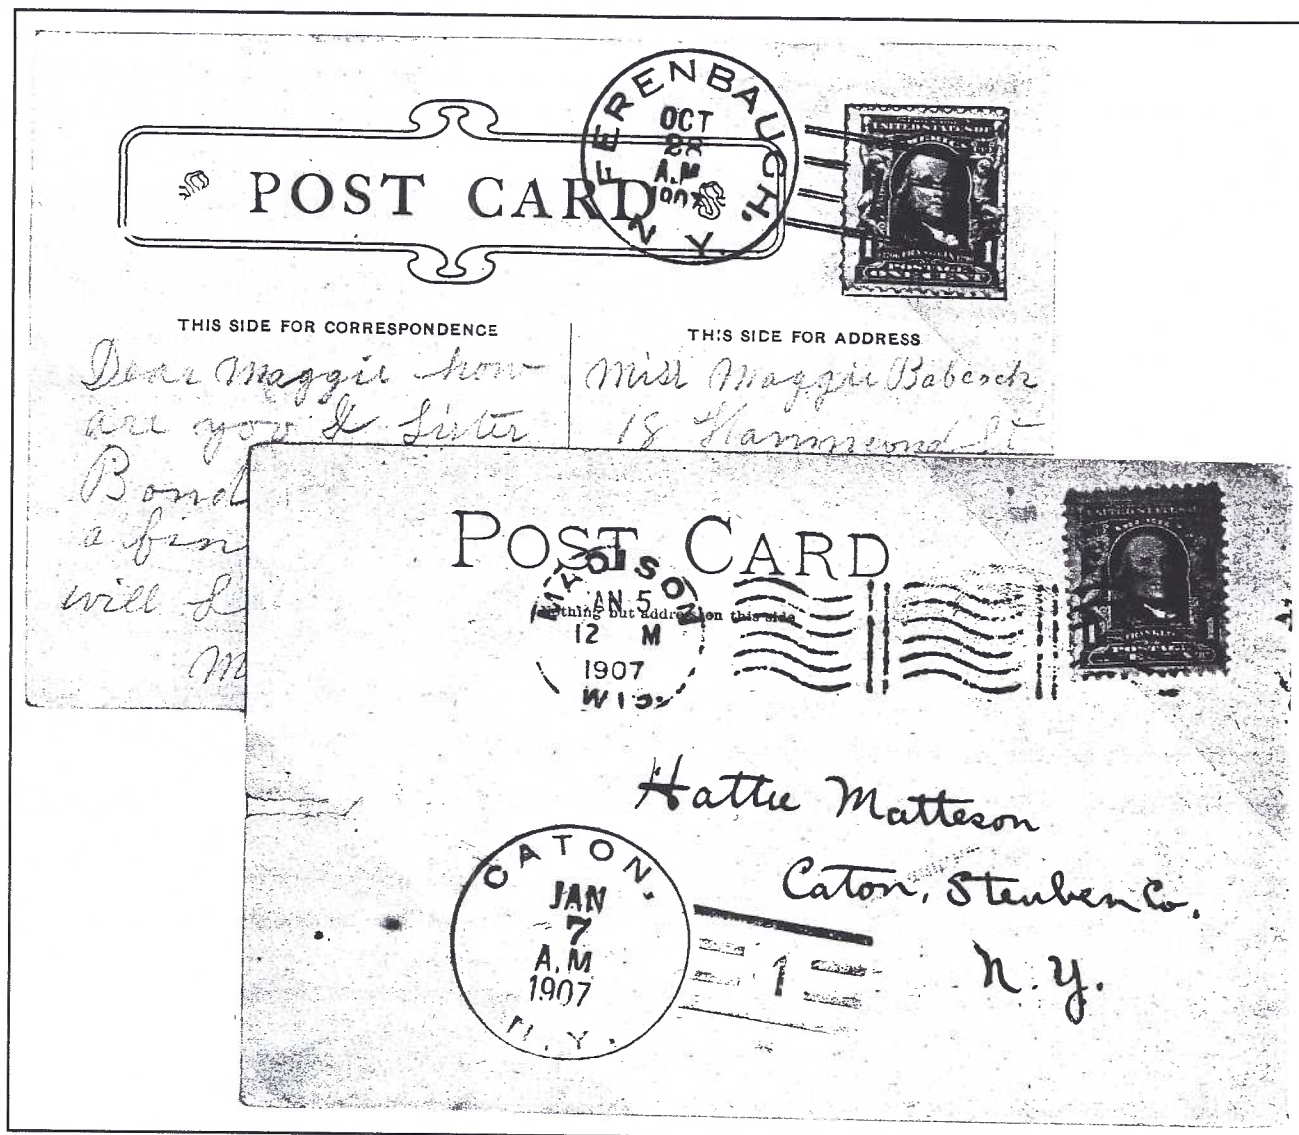 FERENBAUGH.
OCT
28
A.M
1907
N. Y.
POST CARD
UNITED STATES
FRANKLIN
POSTAGE
ONE CENT
THIS SIDE FOR CORRESPONDENCE
THIS SIDE FOR ADDRESS
Dear Maggie how
are you & Sister
Bond
a fin
will
M
Miss Maggie Babcock
18 Hammond St
POST CARD
Nothing but address on this side
MADISON
JAN 5
12 M
1907
WIS.
FRANKLIN
POSTAGE
Hattie Matteson
Caton, Steuben Co.
N. Y.
CATON.
JAN
7
A.M
1907
N.Y.
1